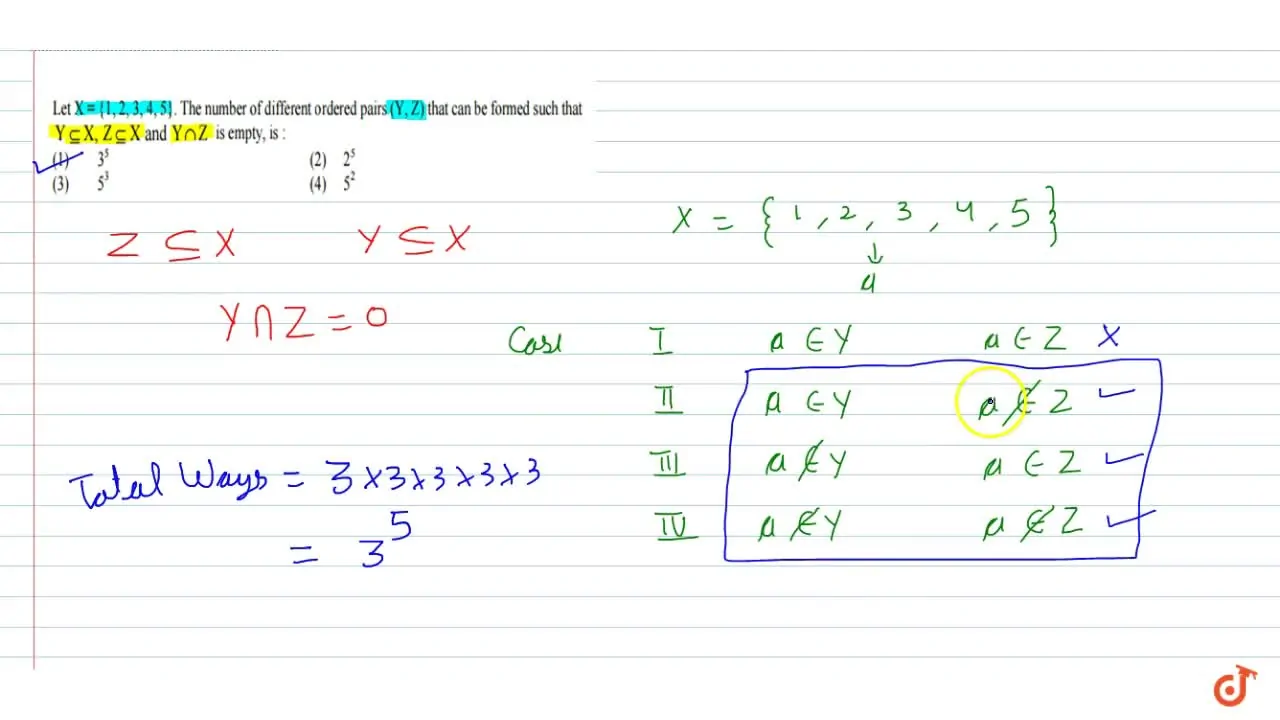 Let X = {1, 2, 3, 4, 5}. The number of different ordered pairs (Y, Z) that can be formed such that
Y ⊆ X, Z ⊆ X and Y∩Z is empty, is :
(1) 3⁵ (2) 2⁵
(3) 5³ (4) 5²
Z ⊆ X Y ⊆ X
Y ∩ Z = 0
X = { 1 , 2 , 3 , 4 , 5 }
↓
a
Case I a ∈ Y a ∈ Z X
II a ∈ Y a ∉ Z ✓
III a ∉ Y a ∈ Z ✓
IV a ∉ Y a ∉ Z ✓
Total Ways = 3 x 3 x 3 x 3 x 3
= 3⁵